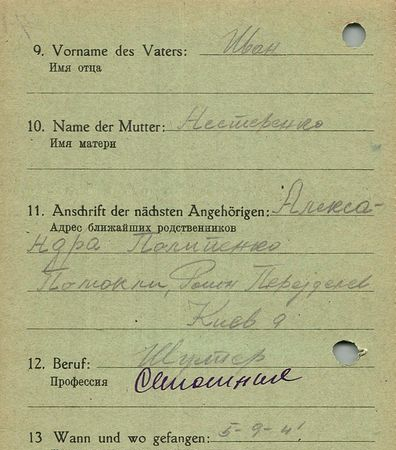 9. Vorname des Vaters: Иван
Имя отца
10. Name der Mutter: Нестеренко
Имя матери
11. Anschrift der nächsten Angehörigen: Алекса-
Адрес ближайших родственников
ндра Политенко
Район
Киев
12. Beruf:
Профессия
13 Wann und wo gefangen: 5-9-41